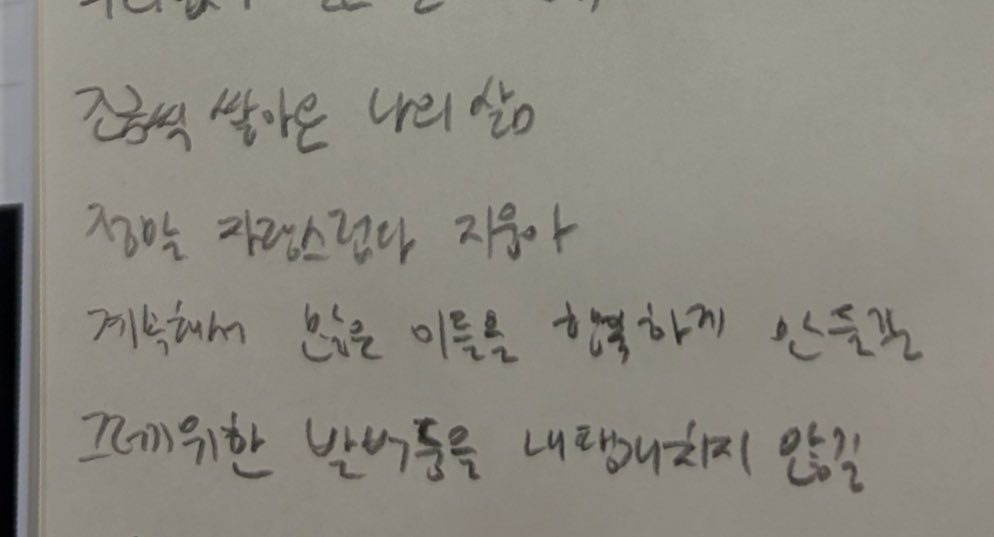 조금씩 쌓아온 나의 삶
정말 자랑스럽다 지웅아
계속해서 많은 이들을 행복하게 만들길
그러기위한 발버둥을 내팽개치지 않길